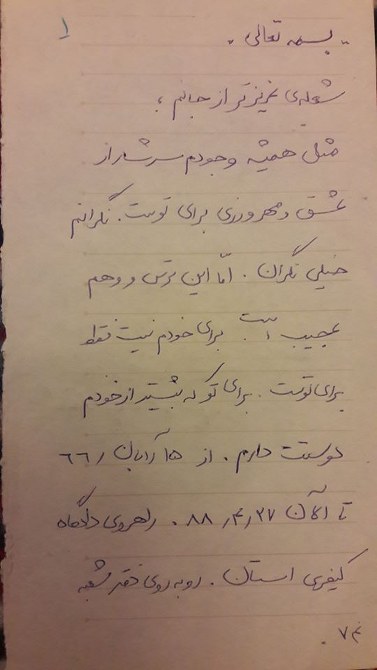 ۱
بسمه تعالی .
شعله‌ی عزیزتر از جانم ،
مثل همیشه وجودم سرشار از
عشق و مهرورزی برای توست . نگرانم
خیلی نگران . امّا این ترس و وهم
عجیب است . برای خودم نیست فقط
برای توست . برای تو که بیشتر از خودم
دوستت دارم . از ۱۵ آبان ۶۶
تا الآن ۸۸٫۴٫۲۷ . راهروی دادگاه
کیفری استان . روبه‌روی دفتر شعبه
۷۴ .